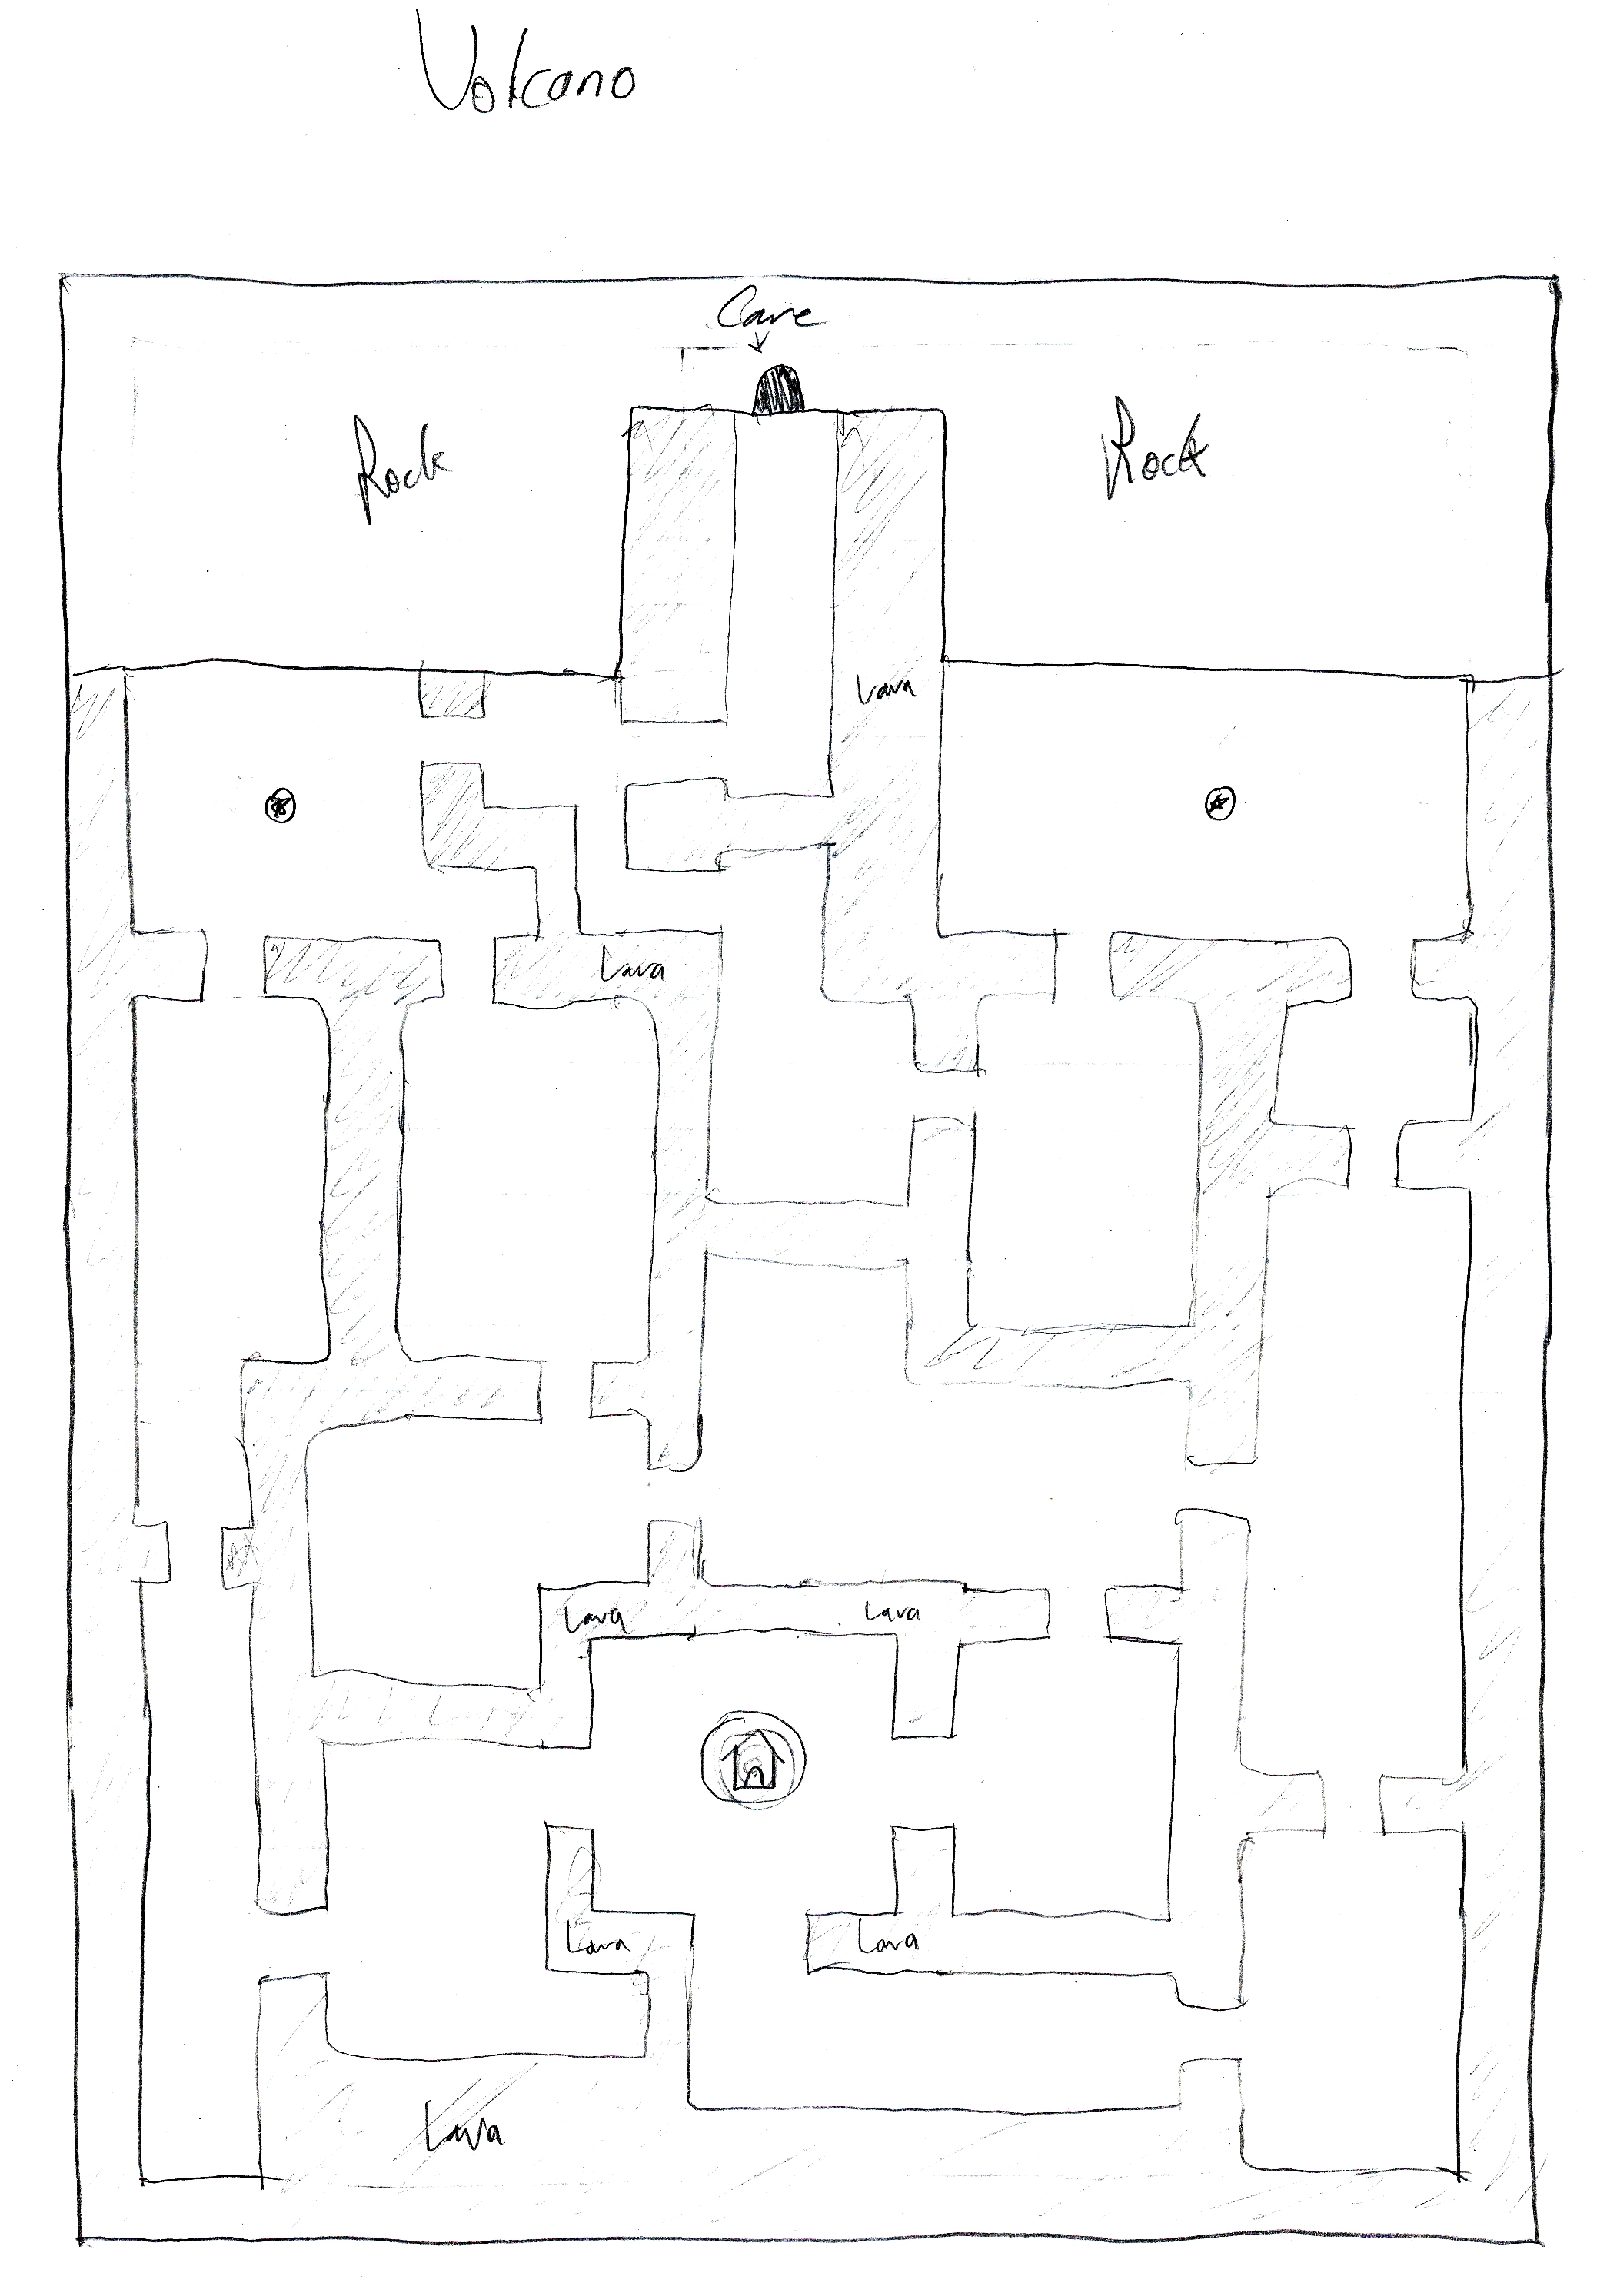 Volcano
Cave
Rock
Rock
Lava
Lava
Lava
Lava
Lava
Lava
Lava